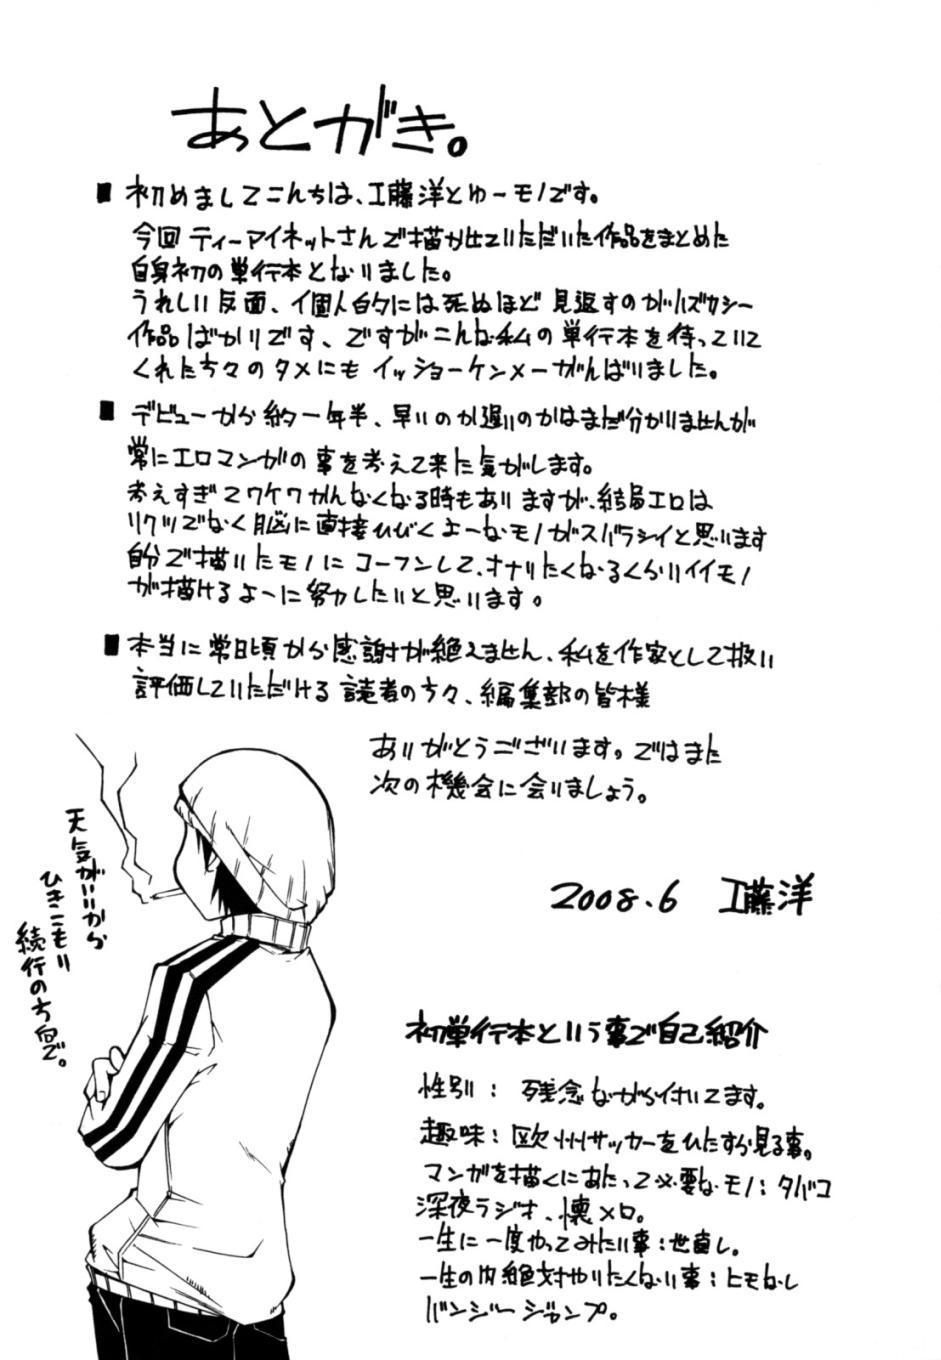 あとがき。
■ 初めましてこんちは、工藤洋とゆーモノです。
今回 ティーアイネットさんで描かせていただいた作品をまとめた
自身初の単行本となりました。
うれしい反面、個人的には死ぬほど見返すのがハズカシー
作品ばかりです、ですがこんな私の単行本を待っていて
くれた方々のタメにも イッショーケンメーがんばりました。
■ デビューから約一年半、早いのか遅いのかはまだ分かりませんが
常にエロマンガの事を考えて来た気がします。
考えすぎてワケワかんなくなる時もありますが、結局エロは
リクツでなく脳に直接ひびくよーなモノがスバラシイと思います
自分で描いたモノにコーフンして、オナりたくなるくらいイイモノ
が描けるよーに努力したいと思います。
■ 本当に常日頃から感謝が絶えません、私を作家として扱い
評価していただける読者の方々、編集部の皆様
ありがとうございます。ではまた
次の機会に会いましょう。
天気がいいから
ひきこもり
続行の方向で。
2008.6 工藤洋
初単行本という事で自己紹介
性別：残念ながら付いてます。
趣味：欧州サッカーをひたすら見る事。
マンガを描くにあたって必要なモノ：タバコ
深夜ラジオ、懐メロ。
一生に一度やってみたい事：世直し。
一生の内絶対やりたくない事：ヒモなし
バンジージャンプ。